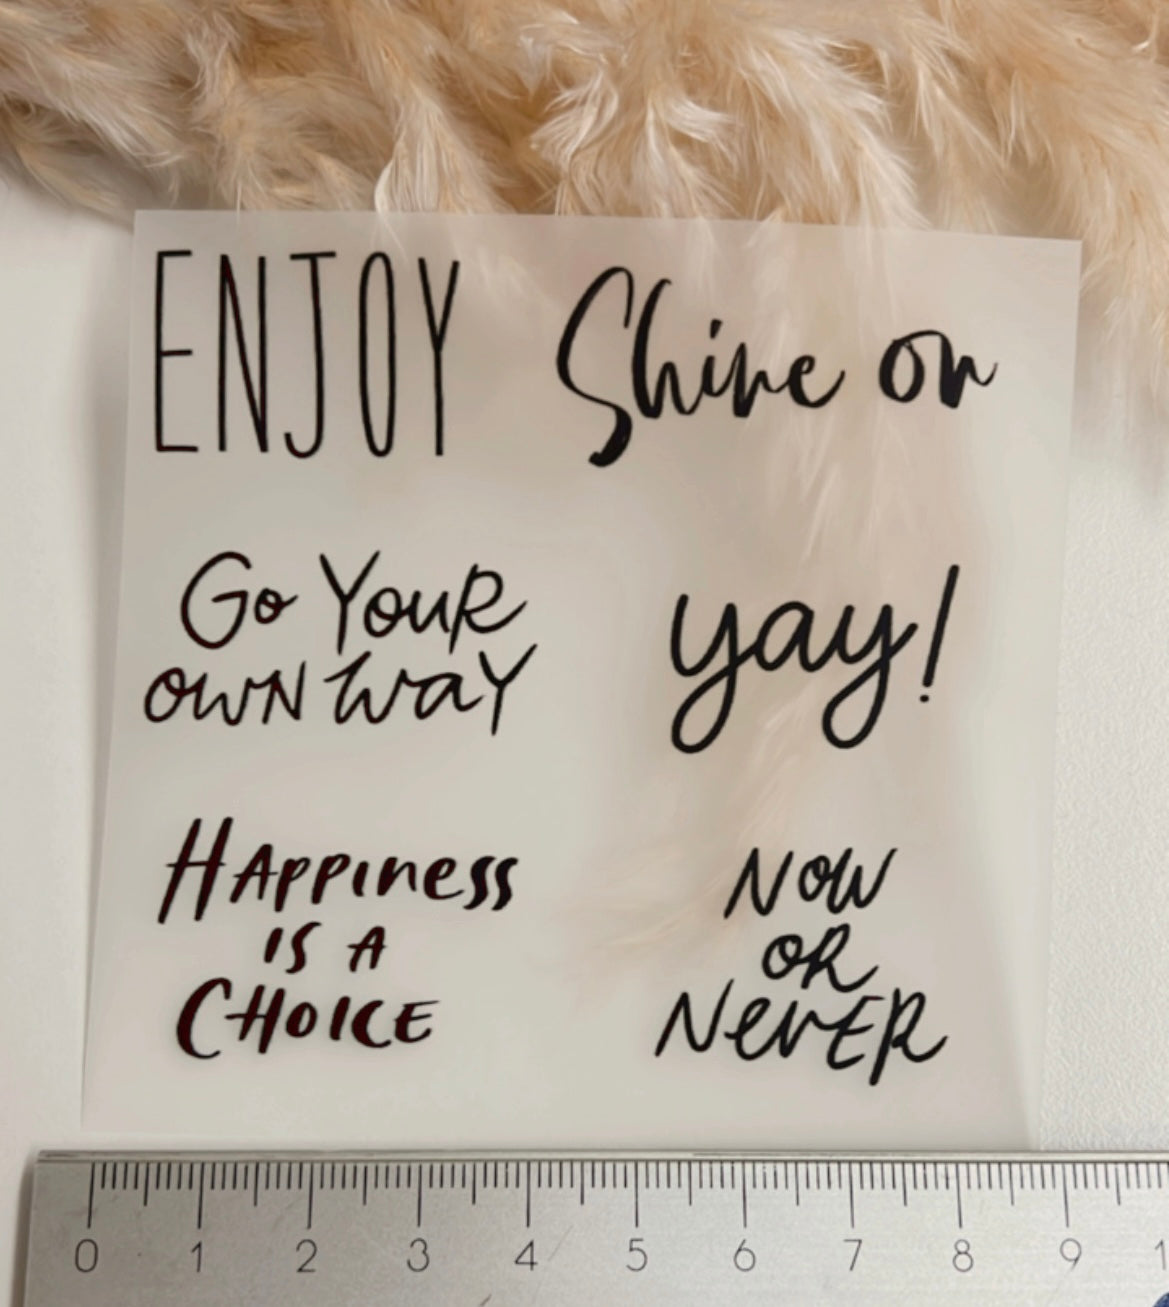 ENJOY
Shine on
Go YouR
OWN WaY
yay!
HAPPINESS
IS A
CHOICE
NOW
OR
NeVER
0 1 2 3 4 5 6 7 8 9